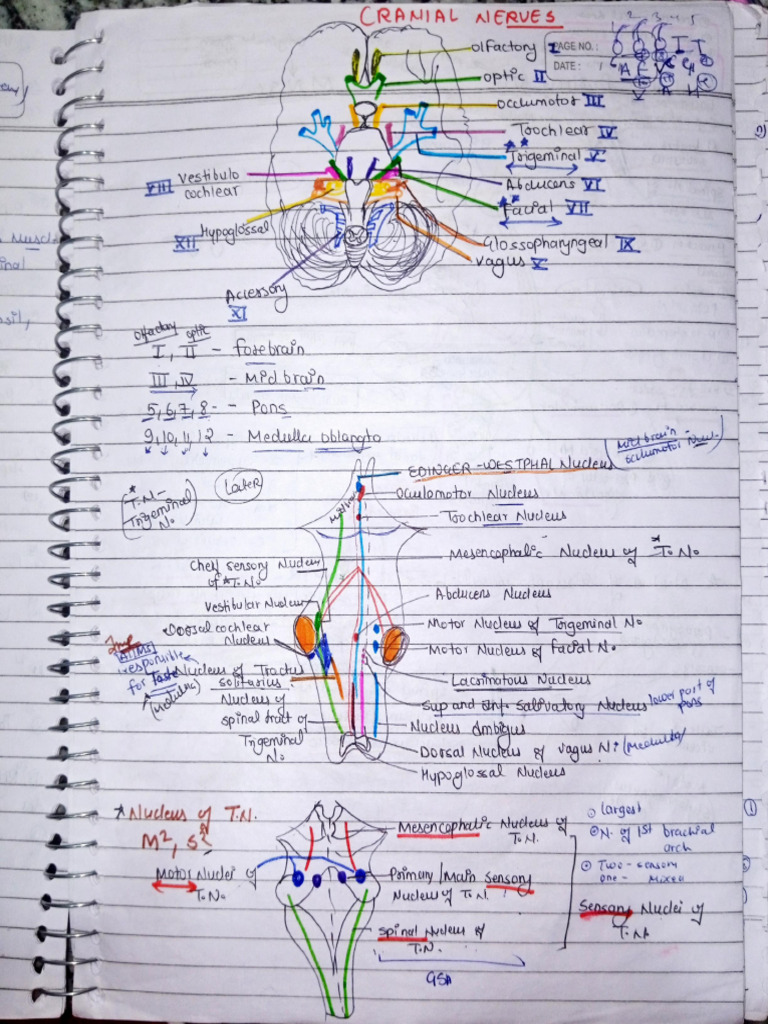 CRANIAL NERVES
PAGE NO.:
DATE:
olfactory I
optic II
occulmotor III
Toochlear IV
Trigeminal V
Abducens VI
Facial VII
Glossopharyngeal IX
vagus X
VIII Vestibulo
cochlear
XII Hypoglossal
Accessory
XI
olfactory optic
I, II - forebrain
III, IV - Mid brain
5, 6, 7, 8 - Pons
9, 10, 11, 12 - Medulla oblangta
* T.N -
Trigeminal
No
Later
EDINGER-WESTPHAL Nucleus
Midbrain
occulmotor Nucl.
Oculomotor Nucleus
Toochlear Nucleus
Mesencephalic Nucleus of *T.No
Cheif sensory Nucleus
of *T.No
Vestibular Nucleus
Dorsal cochlear
Nucleus
Abducens Nucleus
Motor Nucleus of Trigeminal No
Motor Nucleus of facial No
Imp
AIIMS
responsible
for Taste
(Medulla)
Nucleus of Tractus
solitarius
Nucleus of
spinal tract of
Trigeminal
No
Lacrimatous Nucleus
Sup and Inf. Salivatory Nucleus lower part of
pons
Nucleus Ambigus
Dorsal Nucleus of vagus N: (Medulla)
Hypoglossal Nucleus
* Nucleus of T.N.
M², S²
Motor Nuclei of
T.No
Mesencephalic Nucleus of
T.N.
Primary/Main Sensory
Nucleus of T.N.
spinal Nucleus of
T.N.
GSA
largest
N. of 1st brachial
arch
Two - sensory
one - mixed
Sensory Nuclei of
T.N